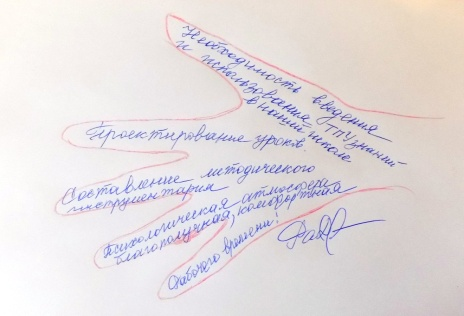 Необходимость введения
и использования ТПУ знаний
в нашей школе
Проектирование уроков
Составление методического
инструментария
Психологическая атмосфера
благополучная, комфортная
рабочего времени!